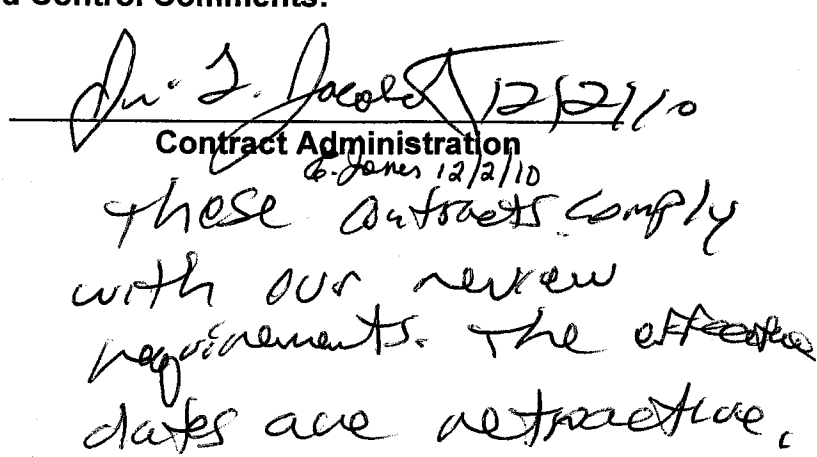 d Control Comments:
Jacobs 12/2/10
Contract Administration
E. Jones 12/2/10
These contracts comply
with our review
requirements. The effective
dates are retroactive.